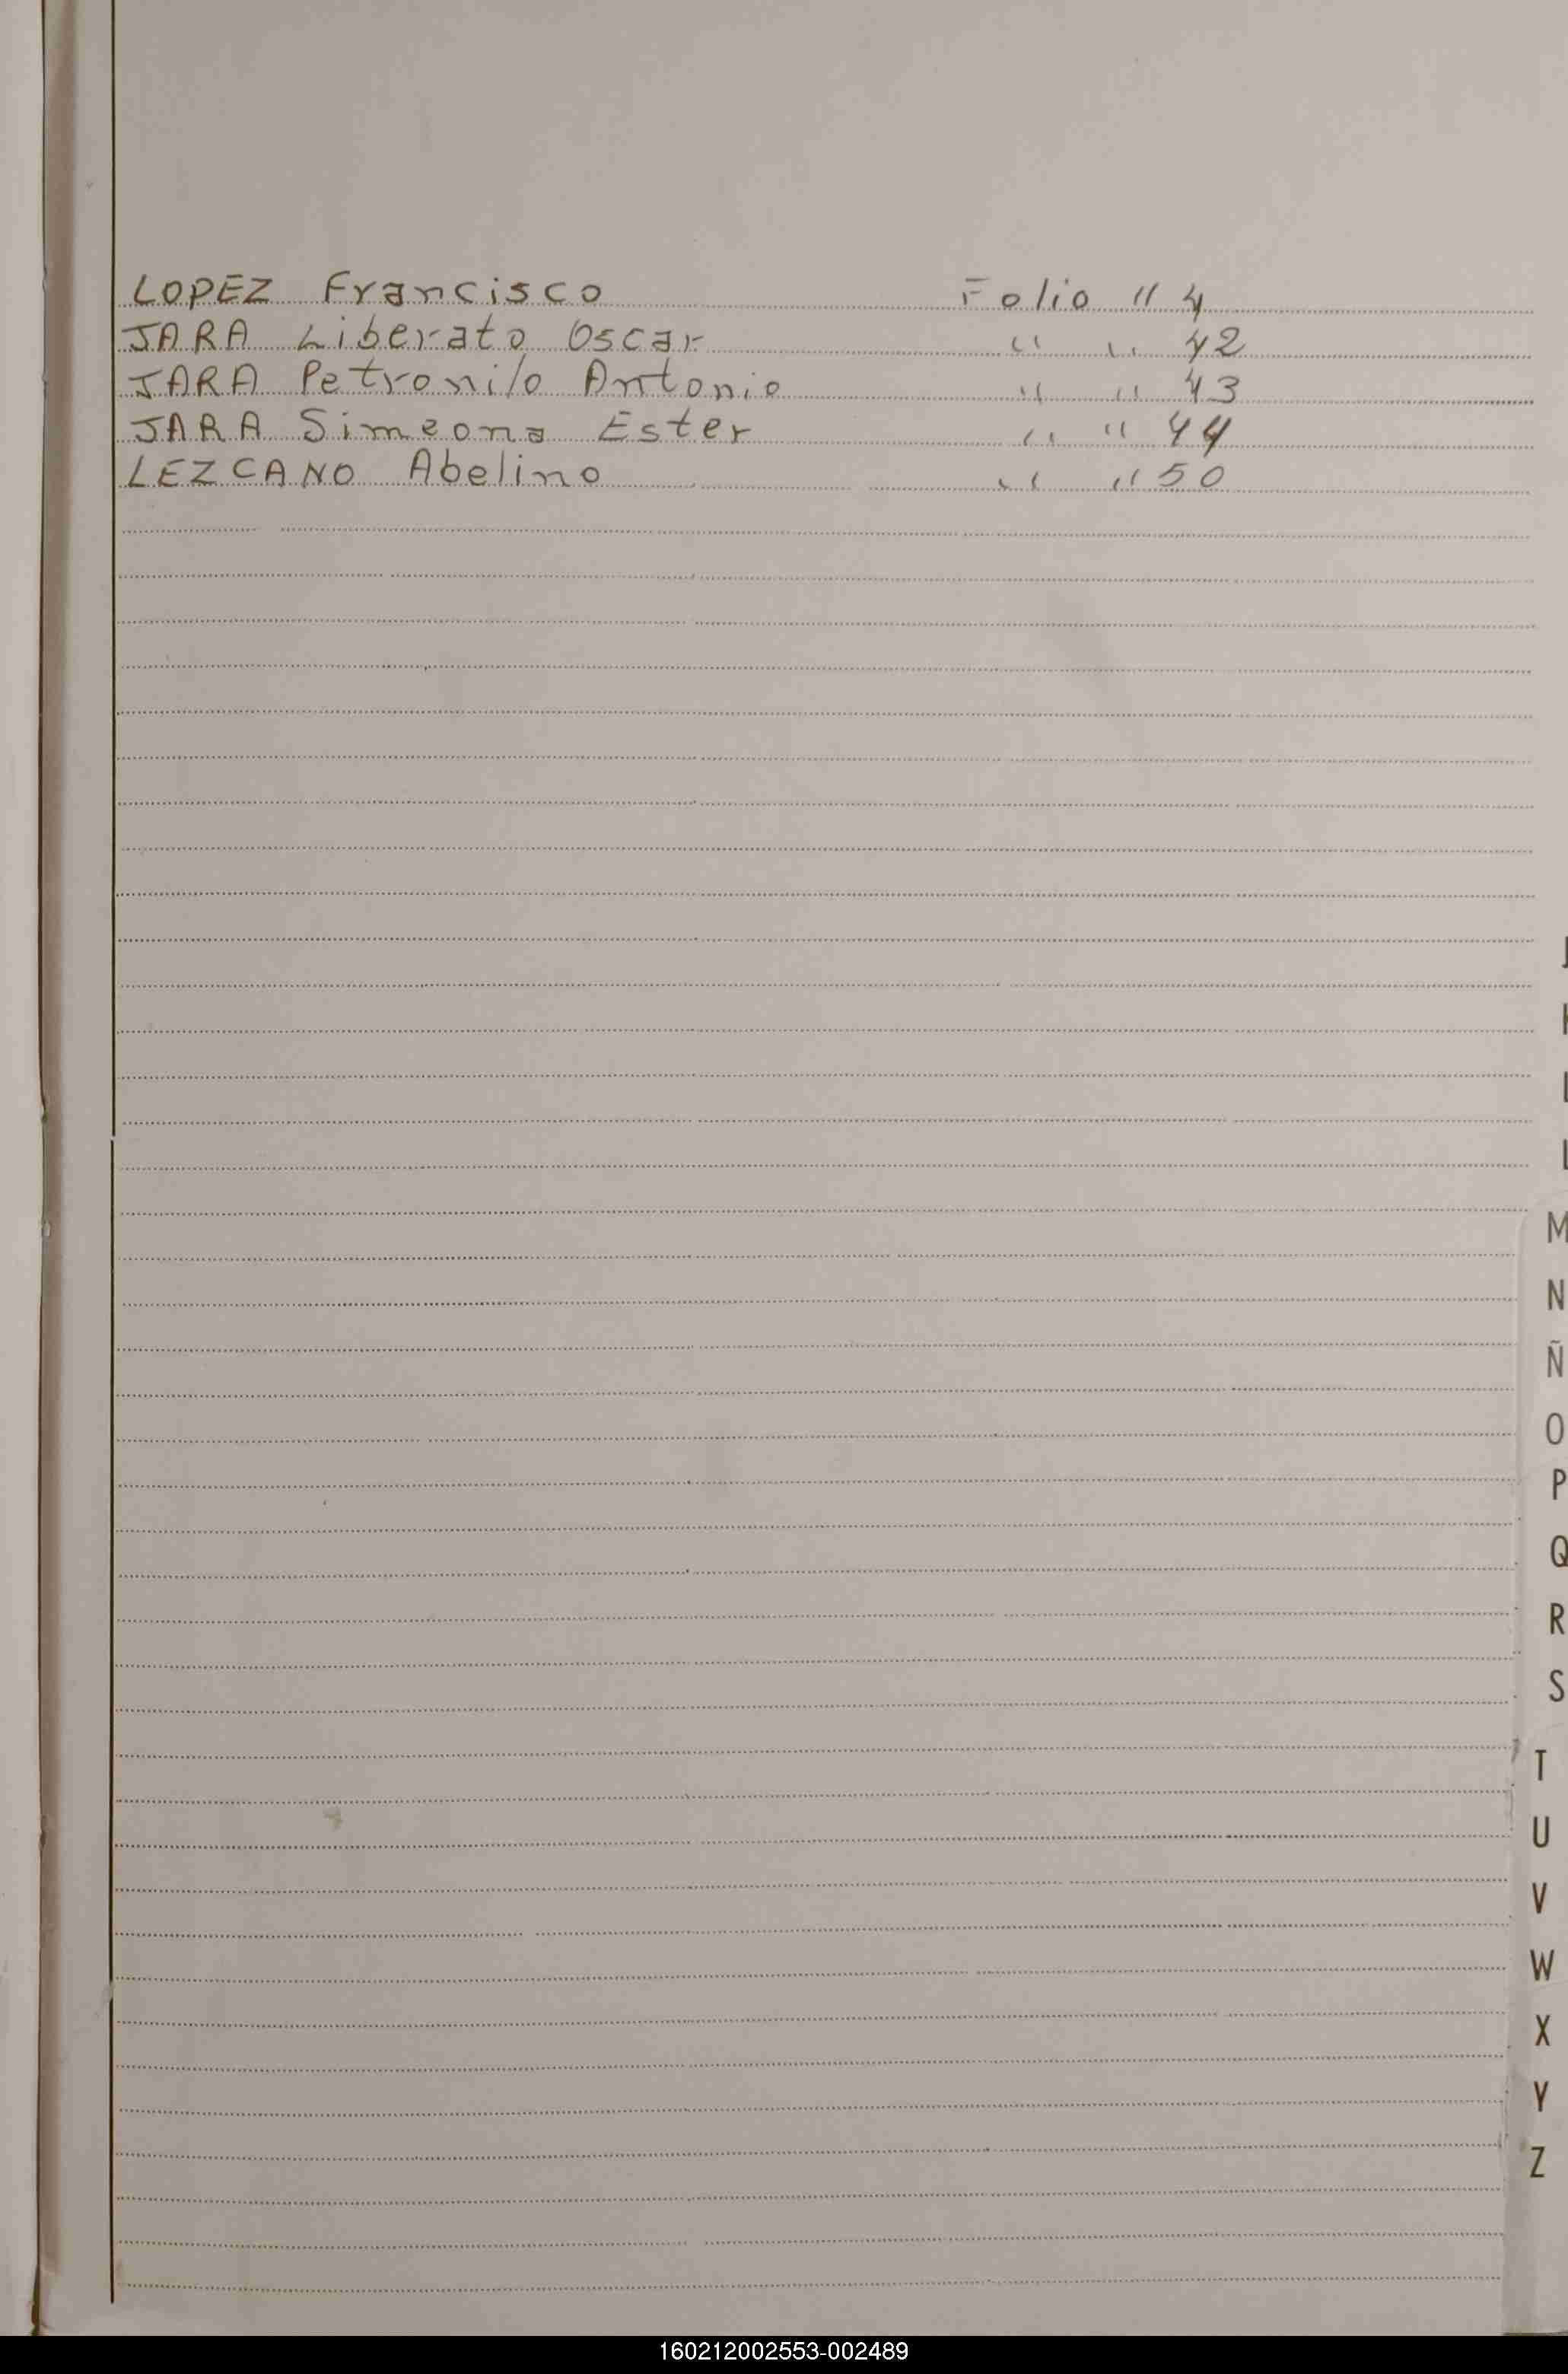 LOPEZ Francisco Folio " 4
JARA Liberato Oscar " " 42
JARA Petronilo Antonio " " 43
JARA Simeona Ester " " 44
LEZCANO Abelino " " 50
M
N
Ñ
O
P
Q
R
S
T
U
V
W
X
Y
Z
160212002553-002489